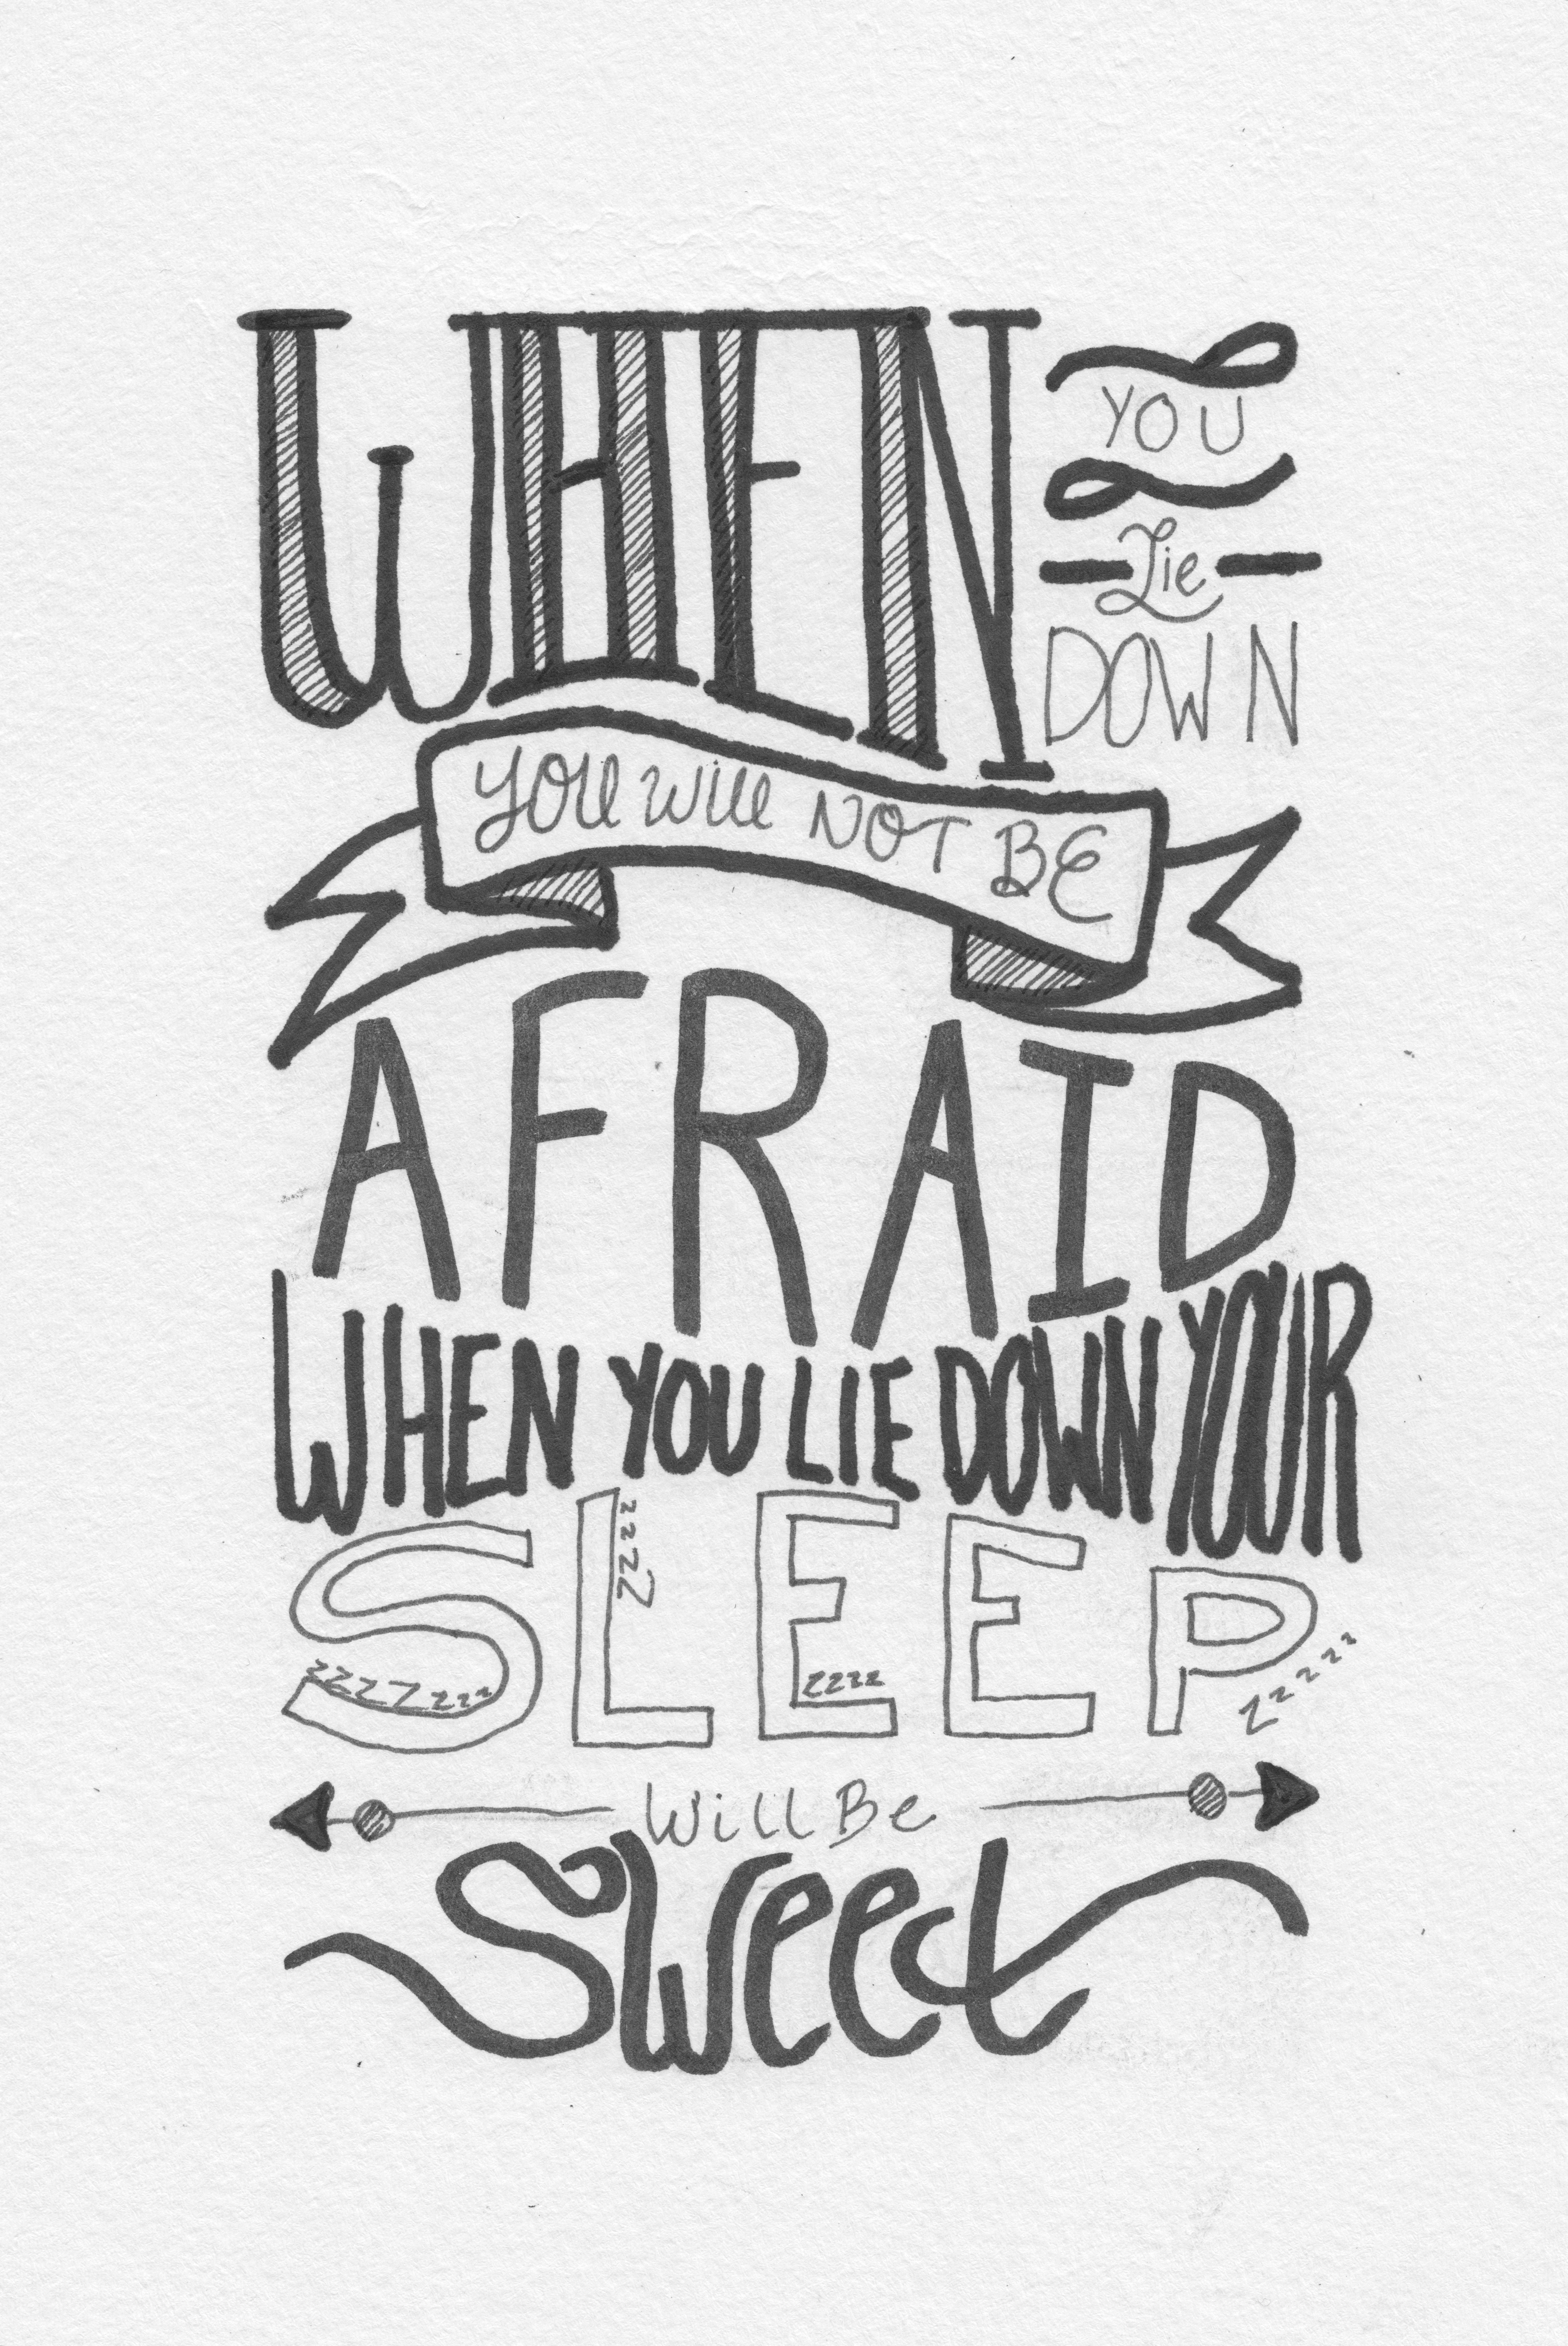 WHEN
YOU
Lie
DOWN
YOU WILL NOT BE
AFRAID
WHEN YOU LIE DOWN YOUR
SLEEP
zzzz
zzzz
zzzzzzz
zzzzz
Will Be
Sweet